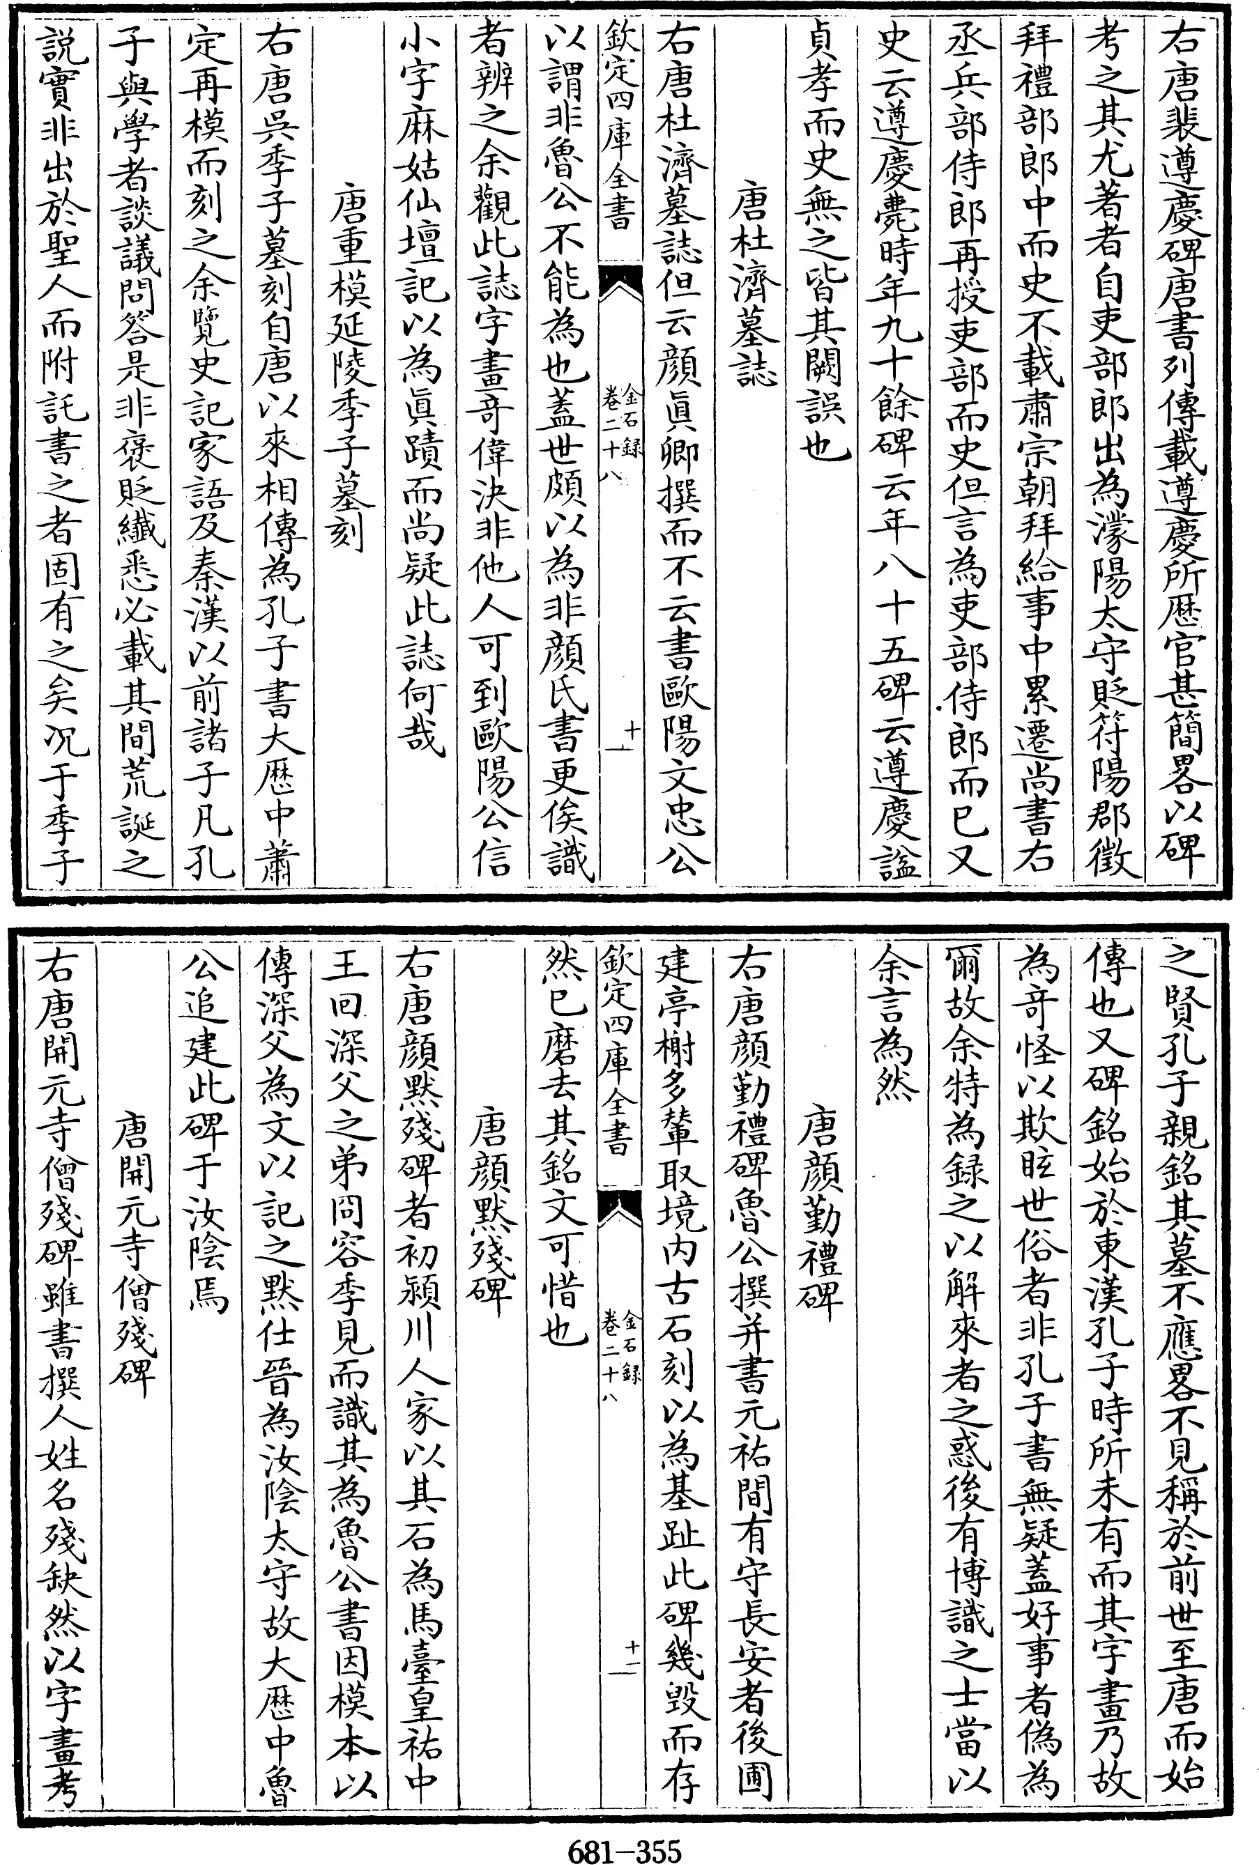 右唐裴遵慶碑唐書列傳載遵慶所歴官甚簡畧以碑
考之其尤著者自吏部郎出為濛陽太守貶符陽郡徵
拜禮部郎中而史不載肅宗朝拜給事中累遷尚書右
丞兵部侍郎再授吏部而史但言為吏部侍郎而已又
史云遵慶薨時年九十餘碑云年八十五碑云遵慶諡
貞孝而史無之皆其闕誤也
唐杜濟墓誌
右唐杜濟墓誌但云顔眞卿撰而不云書歐陽文忠公
欽定四庫全書
金石録
卷二十八
十
以謂非魯公不能為也蓋世頗以為非顔氏書更俟識
者辨之余觀此誌字畫竒偉決非他人可到歐陽公信
小字麻姑仙壇記以為眞蹟而尚疑此誌何哉
唐重模延陵季子墓刻
右唐吳季子墓刻自唐以來相傳為孔子書大歴中蕭
定再模而刻之余覽史記家語及秦漢以前諸子凡孔
子與學者談議問答是非褒貶纖悉必載其間荒誕之
説實非出於聖人而附託書之者固有之矣况于季子
之賢孔子親銘其墓不應畧不見稱於前世至唐而始
傳也又碑銘始於東漢孔子時所未有而其字畫乃故
為竒怪以欺眩世俗者非孔子書無疑蓋好事者偽為
爾故余特為録之以解來者之惑後有博識之士當以
余言為然
唐顔勤禮碑
右唐顔勤禮碑魯公撰并書元祐間有守長安者後圃
建亭榭多輦取境内古石刻以為基趾此碑幾毁而存
欽定四庫全書
金石録
卷二十八
十一
然已磨去其銘文可惜也
唐顔黙殘碑
右唐顔黙殘碑者初潁川人家以其石為馬臺皇祐中
王回深父之弟冏容季見而識其為魯公書因模本以
傳深父為文以記之黙仕晉為汝陰太守故大歴中魯
公追建此碑于汝陰焉
唐開元寺僧殘碑
右唐開元寺僧殘碑雖書撰人姓名殘缺然以字畫考
681-355